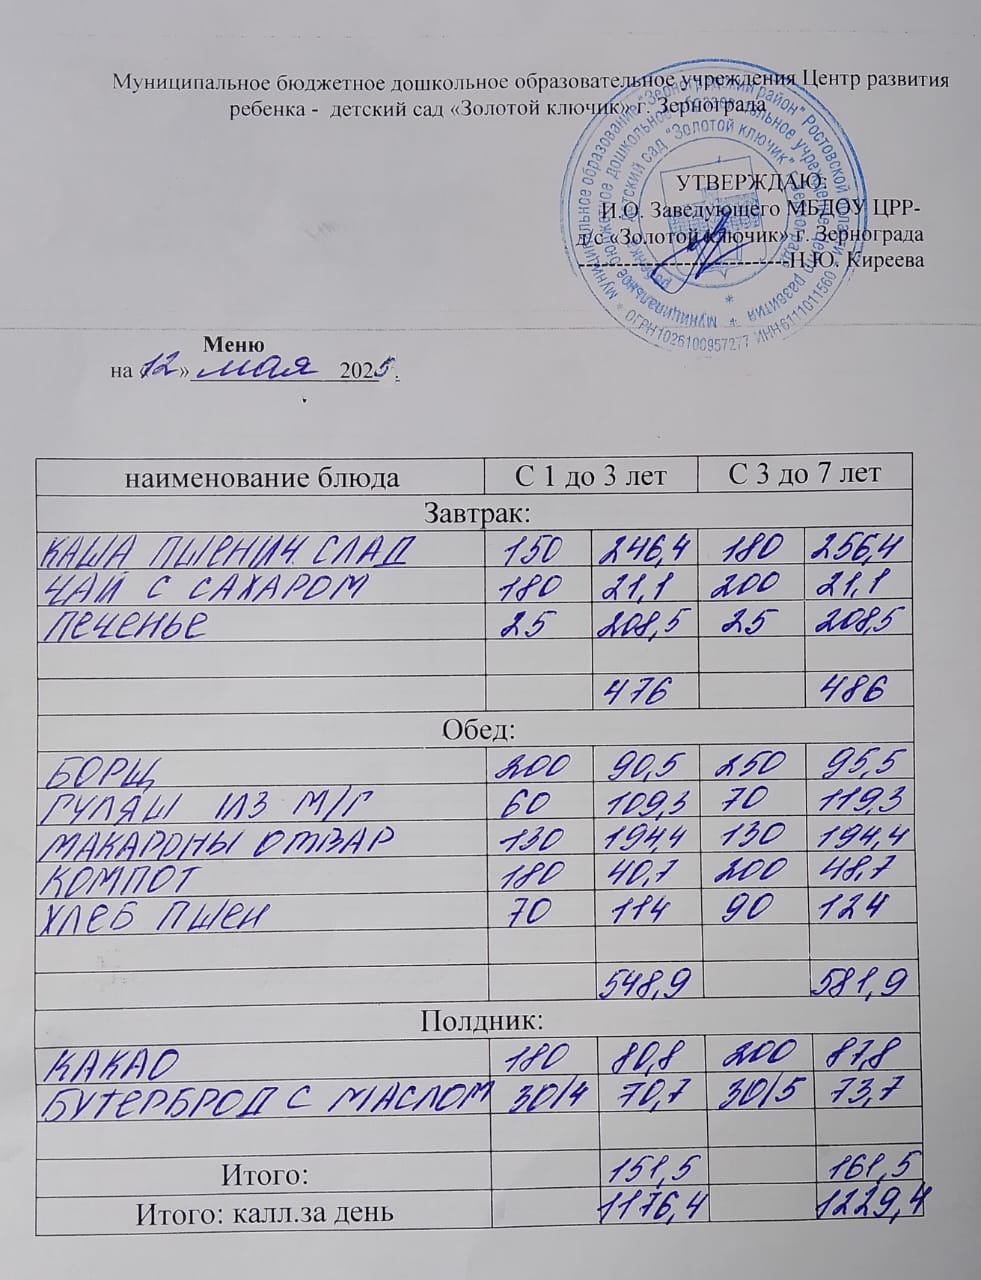 Муниципальное бюджетное дошкольное образовательное учреждения Центр развития
ребенка - детский сад «Золотой ключик» г. Зернограда
УТВЕРЖДАЮ:
И.О. Заведующего МБДОУ ЦРР-
д/с «Золотой ключик» г. Зернограда
Н.Ю. Киреева
ОГРН 1026100957277 ИНН 6111011560
Меню
на «12» мая 2025 .
наименование блюда С 1 до 3 лет С 3 до 7 лет
Завтрак:
КАША ПШЕНИЧ. СЛАД 150 246,4 180 256,4
ЧАЙ С САХАРОМ 180 21,1 200 21,1
ПЕЧЕНЬЕ 25 208,5 25 208,5
476 486
Обед:
БОРЩ 200 90,5 250 95,5
ГУЛЯШ ИЗ М/Г 60 109,3 70 119,3
МАКАРОНЫ ОТВАР 130 194,4 130 194,4
КОМПОТ 180 40,7 200 48,7
ХЛЕБ ПШЕН 70 114 90 124
548,9 581,9
Полдник:
КАКАО 180 80,8 200 87,8
БУТЕРБРОД С МАСЛОМ 30/4 70,7 30/5 73,7
Итого: 151,5 161,5
Итого: калл.за день 1176,4 1229,4